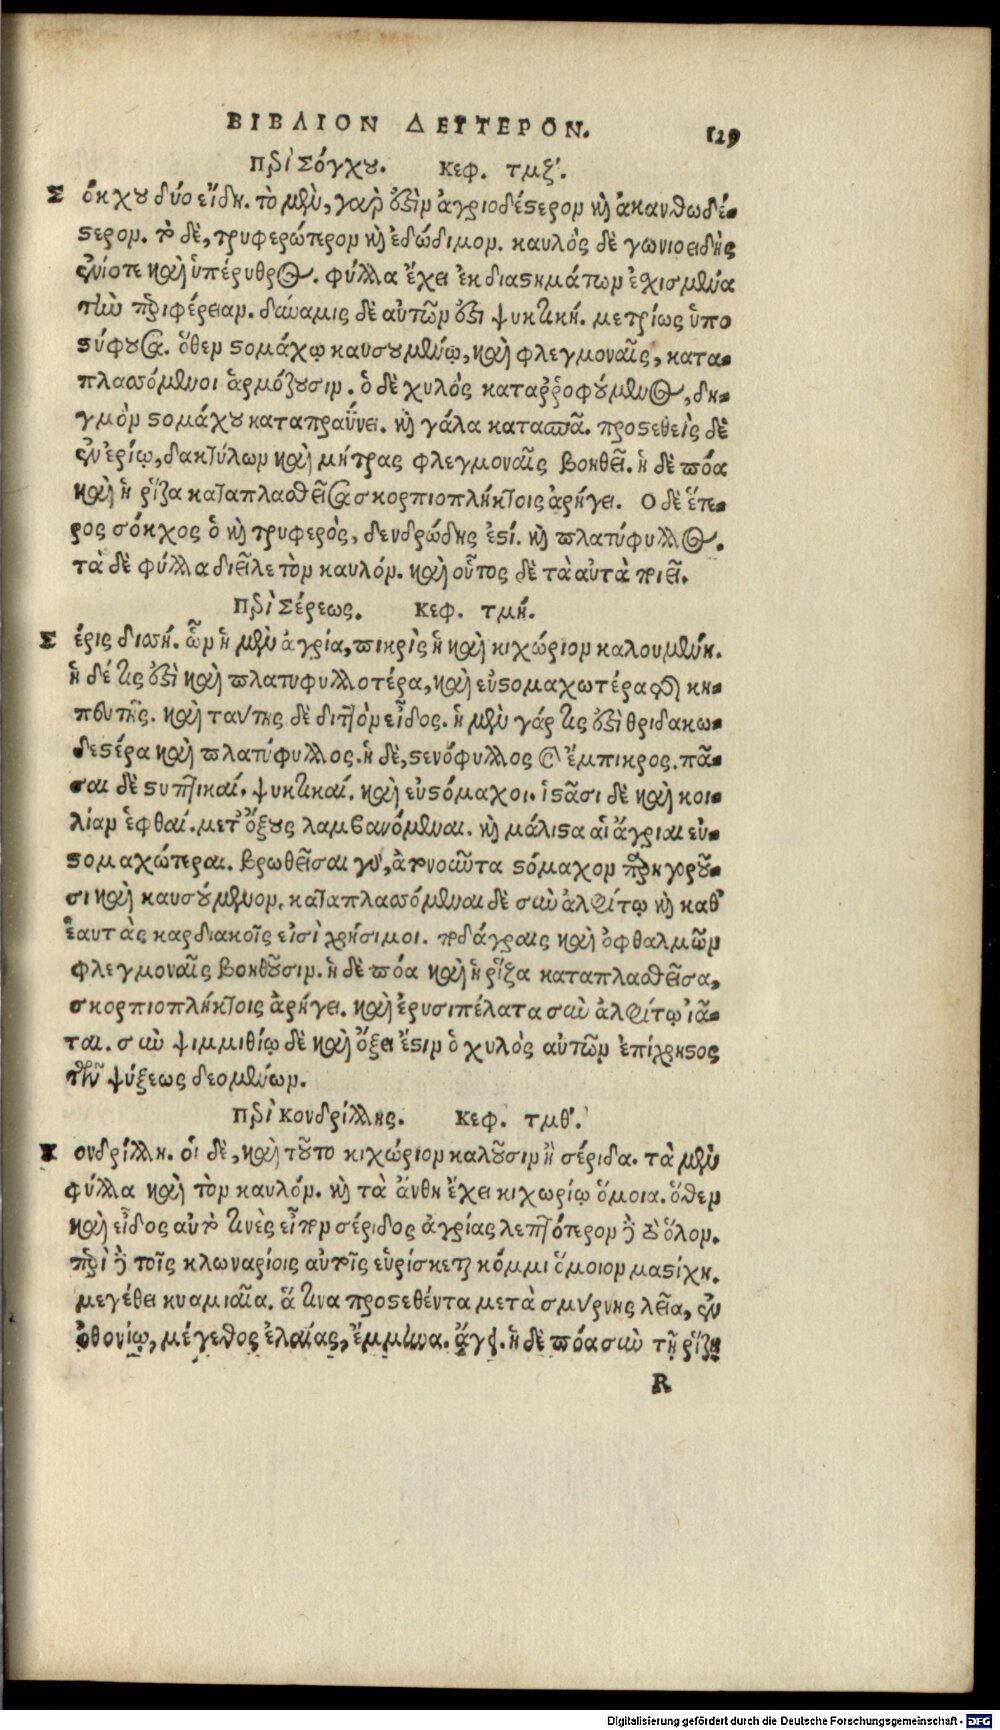 ΒΙΒΛΙΟΝ ΔΕΥΤΕΡΟΝ. 129
Περὶ Σόγχου. Κεφ. τμζ΄.
Σόγχου δύο εἴδη. τὸ μὲν, γαρ ὅξὶν ἀγριοδέστερον καὶ ἀκανθωδέ-
στερον. τὸ δὲ, τρυφερώτερον καὶ ἐδώδιμον. καυλὸς δὲ γωνιοειδὴς
ἐνίοτε καὶ ὑπέρυθρος. φύλλα ἔχει ἐκ διαστημάτων ἐχισμένα
τὴν περιφέρειαν. δύναμις δὲ αὐτῶν ἐστι ψυκτική. μετρίως ὑπο
στύφουσα. ὅθεν στομάχῳ καυσουμένῳ, καὶ φλεγμοναῖς, κατα-
πλασσόμενοι ἁρμόζουσιν. ὁ δὲ χυλὸς καταῤῥοφούμενος, δη-
γμὸν στομάχου καταπραΰνει. καὶ γάλα κατασπᾶ. προστεθεὶς δὲ
ἐν ἐρίῳ, δακτύλων καὶ μήτρας φλεγμοναῖς βοηθεῖ. ἡ δὲ πόα
καὶ ἡ ῥίζα καταπλασθεῖσα σκορπιοπλήκτοις ἀρήγει. Ο δὲ ἕτε-
ρος σόγχος ὁ καὶ τρυφερὸς, δενδρώδης ἐστί. καὶ πλατύφυλλος.
τὰ δὲ φύλλα διεῖλε τὸν καυλόν. καὶ οὗτος δὲ τὰ αὐτὰ ποιεῖ.
Περὶ Σέρεως. Κεφ. τμή.
Σέρις δισσή. ὧν ἡ μὲν ἀγρία, πικρὶς ἡ καὶ κιχώριον καλουμένη.
ἡ δέ τις ἐστὶ καὶ πλατυφυλλοτέρα, καὶ εὐστομαχωτέρα τῆς κη-
πευτῆς. καὶ ταύτης δὲ διττὸν εἶδος. ἡ μὲν γάρ τις ἐστὶ θριδακω-
δεστέρα καὶ πλατύφυλλος. ἡ δὲ, στενόφυλλος καὶ ἔμπικρος. πᾶ-
σαι δὲ στυπτικαί. ψυκτικαί. καὶ εὐστόμαχοι. ἱστᾶσι δὲ καὶ κοι-
λίαν ἑφθαί. μετ' ὄξους λαμβανόμεναι. καὶ μάλιστα αἱ ἄγριαι εὐ-
στομαχώτεραι. βρωθεῖσαι γὰρ, ἀτονοῦντα στόμαχον παρηγοροῦ-
σι καὶ καυσούμενον. καταπλασσόμεναι δὲ σὺν ἀλφίτῳ καὶ καθ'
ἑαυτὰς καρδιακοῖς εἰσὶ χρήσιμοι. ποδάγραις καὶ ὀφθαλμῶν
φλεγμοναῖς βοηθοῦσιν. ἡ δὲ πόα καὶ ἡ ῥίζα καταπλασθεῖσα,
σκορπιοπλήκτοις ἀρήγει. καὶ ἐρυσιπέλατα σὺν ἀλφίτῳ ἰᾶ-
ται. σὺν ψιμμιθίῳ δὲ καὶ ὄξει ἔστιν ὁ χυλὸς αὐτῶν ἐπίχρηστος
τῶν ψύξεως δεομένων.
Περὶ Κονδρίλλης. Κεφ. τμθ΄.
Κονδρίλλη. οἱ δὲ, καὶ τοῦτο κιχώριον καλοῦσιν ἢ σέριδα. τὰ μὲν
φύλλα καὶ τὸν καυλόν. καὶ τὰ ἄνθη ἔχει κιχωρίῳ ὅμοια. ὅθεν
καὶ εἶδος αὐτό τινὲς εἶπον σέριδος ἀγρίας λεπτότερον δὲ τὸ ὅλον.
περὶ δὲ τοῖς κλωναρίοις αὐτοῖς εὑρίσκεται κόμμι ὅμοιον μαστίχη.
μεγέθει κυαμιαῖα. ἅ τινα προστεθέντα μετὰ σμύρνης λεῖα, ἐν
ὀθονίῳ, μέγεθος ἐλαίας, ἔμμηνα. ἄγει. ἡ δὲ πόα σὺν τῇ ῥίζῃ
R
Digitalisierung gefördert durch die Deutsche Forschungsgemeinschaft - DFG